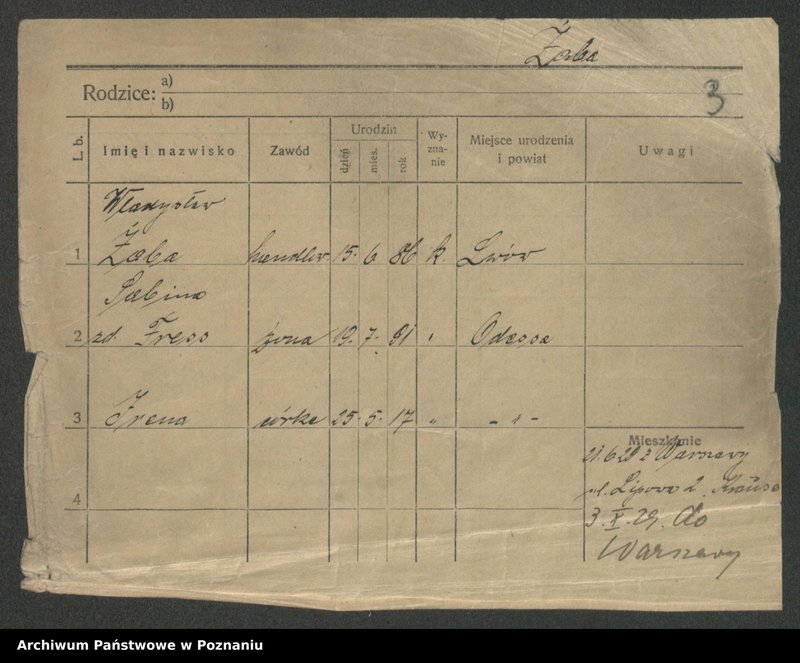 Żaba
Rodzice: a)
b)
3
L. b.
Imię i nazwisko
Zawód
Urodzin
dzień
mies.
rok
Wy-
zna-
nie
Miejsce urodzenia
i powiat
Uwagi
Władysław
1 Żaba handlow 15. 6 86 k. Lwów
Sabina
2 zd. Fress żona 19. 7. 91 " Odessa
3 Irena córka 25. 5. 17 " - " -
Mieszkanie
21.6 29 z Warszawy
4 ul. Lipowa 2
3. X. 29. do
Warszawy
Archiwum Państwowe w Poznaniu